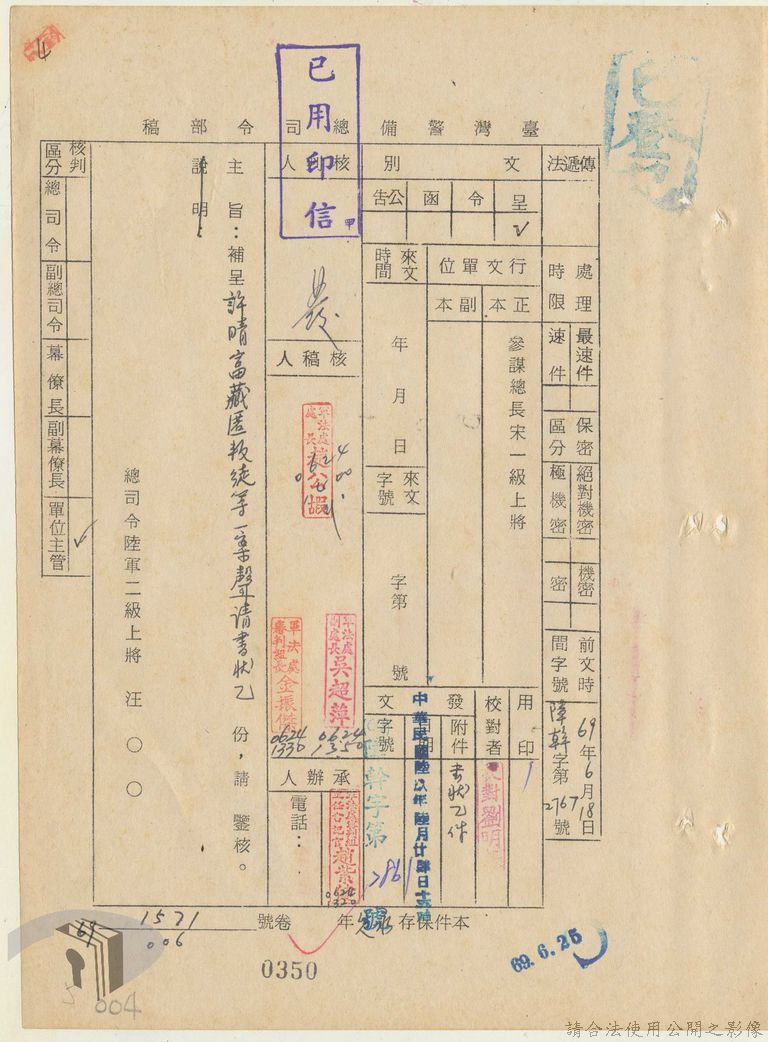 臺灣警備總司令部稿
已用印信
甲
傳遞法
處理時限
最速件
速件
保密區分
絕對機密
極機密
機密
密
前文時間字號
69年6月18日
障幹字第2767號
文別
呈
令
函
公告
✓
行文單位
正本
副本
參謀總長宋一級上將
來文時間
年月日
來文字號
字第 號
用印
校對者
校對劉明
發文
附件
書狀乙件
時間
中華民國陸玖年陸月廿肆日
字號
幹字第
2861
號
核判人
核稿人
軍法處處長
軍法處副處長吳超萍
0624
1350
軍法處審判組長金振傑
0624
1330
承辦人
電話：
0624
1320
主旨：補呈許晴富藏匿叛徒等一案聲請書狀乙份，請鑒核。
說明：
總司令陸軍二級上將 汪〇〇
核判區分
總司令
副總司令
幕僚長
副幕僚長
單位主管
✓
本件保存 年
卷號
69
1571
006
0350
69.6.25
5
004
4
請合法使用公開之影像